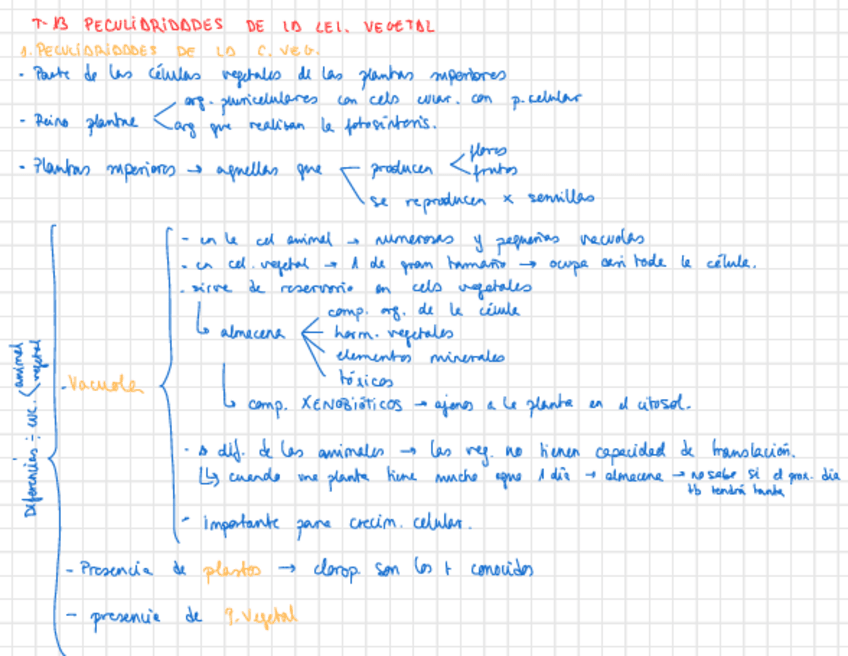 T-13 PECULIARIDADES DE LA CEL. VEGETAL
1. PECULIARIDADES DE LA C. VEG.
- Parte de las células vegetales de las plantas superiores
org. pluricelulares con cels eucar. con p.celular
- Reino plantae
org que realizan la fotosíntesis.
flores
- Plantas superiores → aquellas que producen
frutos
se reproducen x semillas
- en la cel animal → numerosas y pequeñas vacuolas
- en cel. vegetal → 1 de gran tamaño → ocupa casi toda la célula.
- sirve de reservorio en cels vegetales
comp. org. de la célula
almacena horm. vegetales
elementos minerales
tóxicos
comp. XENOBIÓTICOS → ajenos a la planta en el citosol.
Diferencias: euc. animal vegetal
- Vacuola
- A dif. de los animales → las veg. no tienen capacidad de translación.
cuando una planta tiene mucho agua 1 día → almacena → no sabe si el prox. día
tb tendrá tanta
- importante para crecim. celular.
- Presencia de plastos → clorop. son los + conocidos
- presencia de P. Vegetal